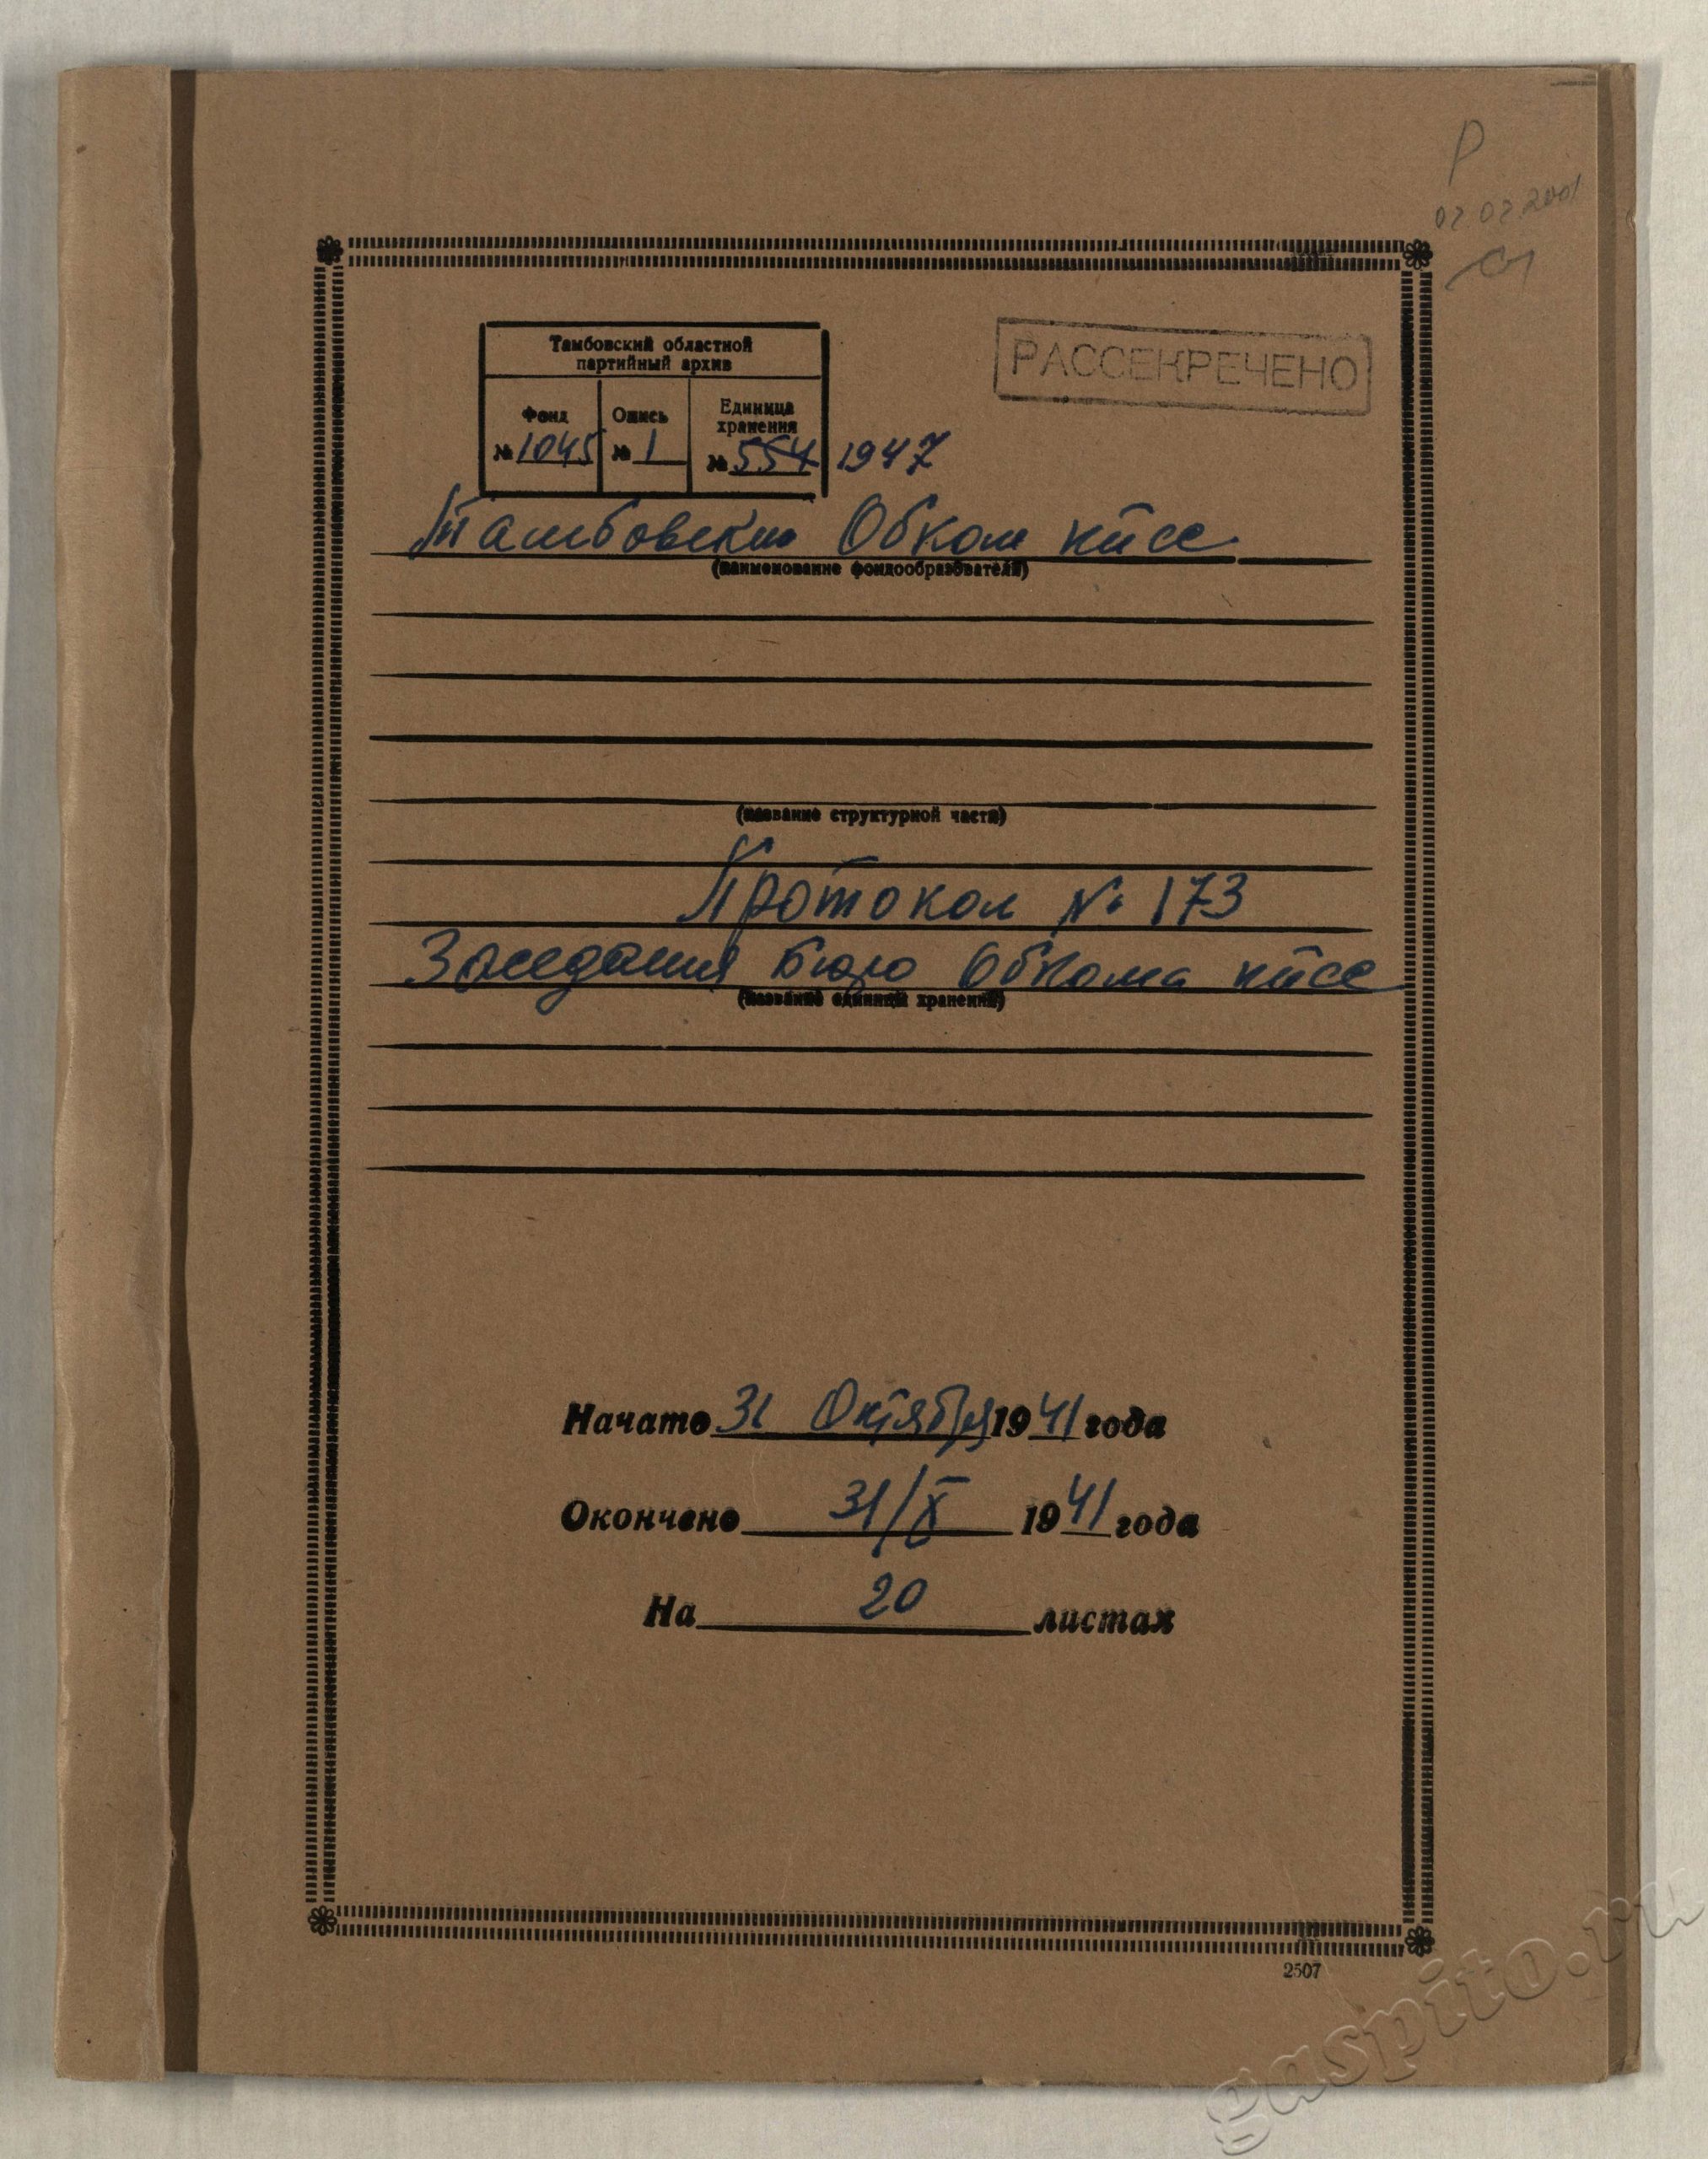 Р
02 02.2001
РАССЕКРЕЧЕНО
Тамбовский областной
партийный архив
Фонд
№ 1045
Опись
№ 1
Единица
хранения
№ 554
1947
Тамбовский Обком кпсс
(наименование фондообразователя)
(название структурной части)
Протокол № 173
Заседания бюро Обкома кпсс
(название единицы хранения)
Начато 31 Октября 1941 года
Окончено 31/X 1941 года
На 20 листах
2507
gaspito.ru